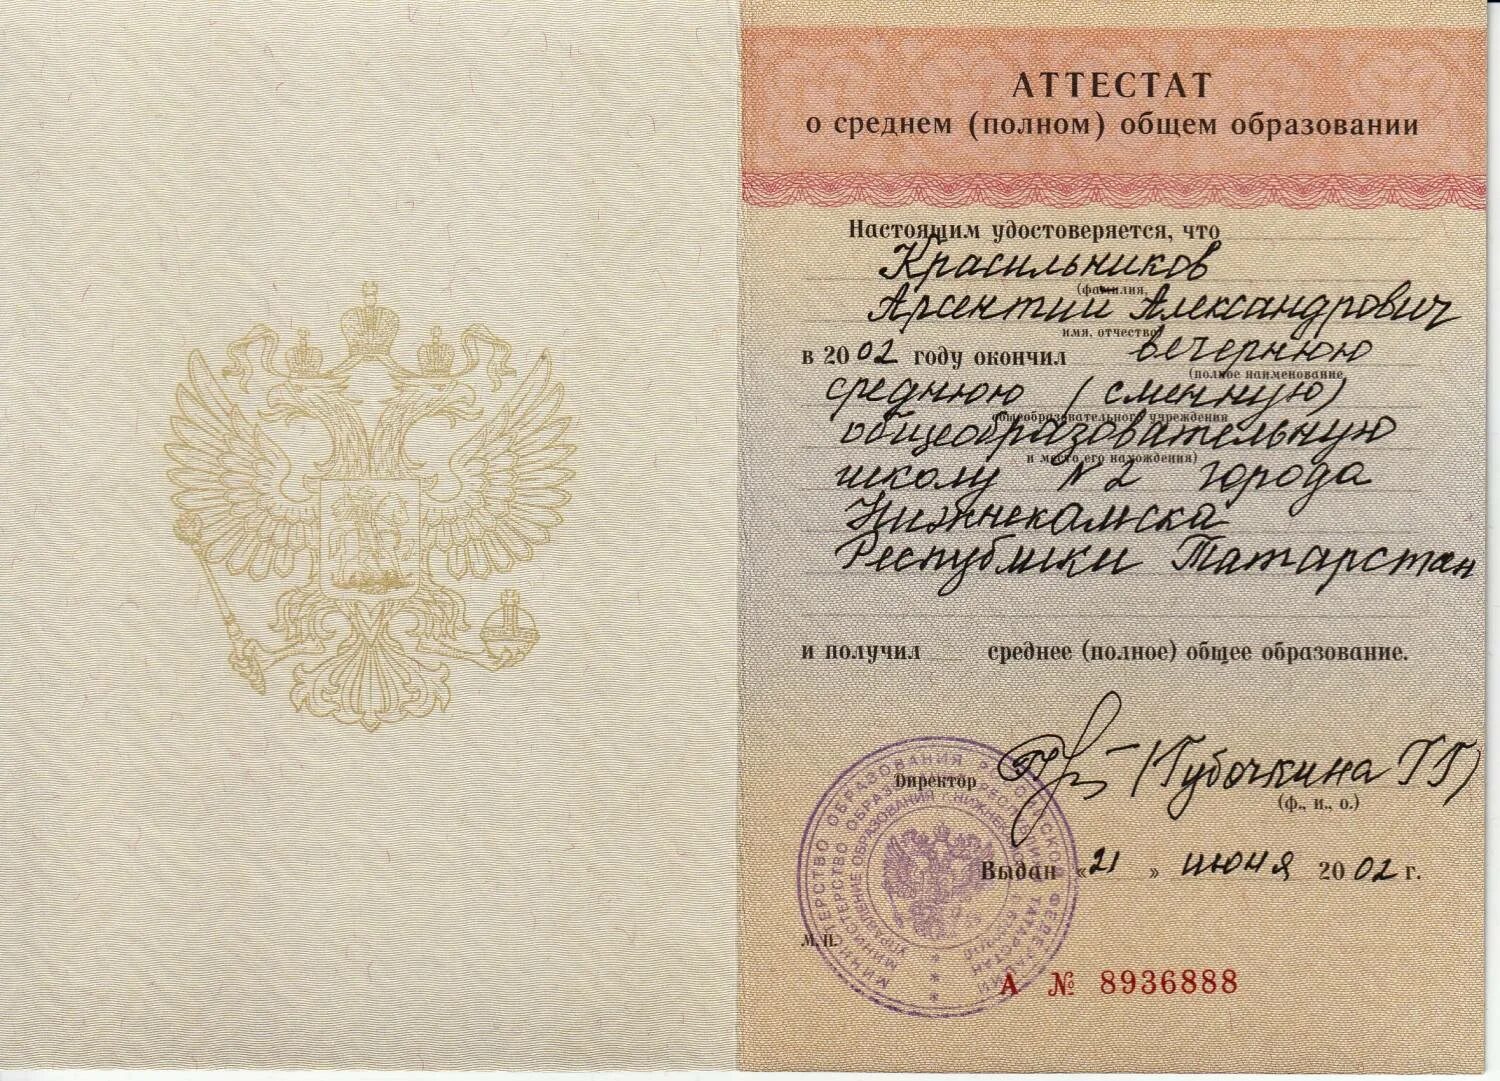 АТТЕСТАТ
о среднем (полном) общем образовании
Настоящим удостоверяется, что
Красильников
(фамилия,
Арсентий Александрович
имя, отчество)
в 2002 году окончил вечернюю
(полное наименование
среднюю (сменную)
общеобразовательного учреждения
общеобразовательную
и место его нахождения)
школу №2 города
Нижнекамска
Республики Татарстан
и получил среднее (полное) общее образование.
Директор (Губочкина ГГ)
(ф., и., о.)
Выдан «21» июня 2002 г.
М. П.
А № 8936888
МИНИСТЕРСТВО ОБРАЗОВАНИЯ РОССИЙСКОЙ ФЕДЕРАЦИИ
МИНИСТЕРСТВО ОБРАЗОВАНИЯ РЕСПУБЛИКИ ТАТАРСТАН
УПРАВЛЕНИЕ ОБРАЗОВАНИЯ Г. НИЖНЕКАМСКА